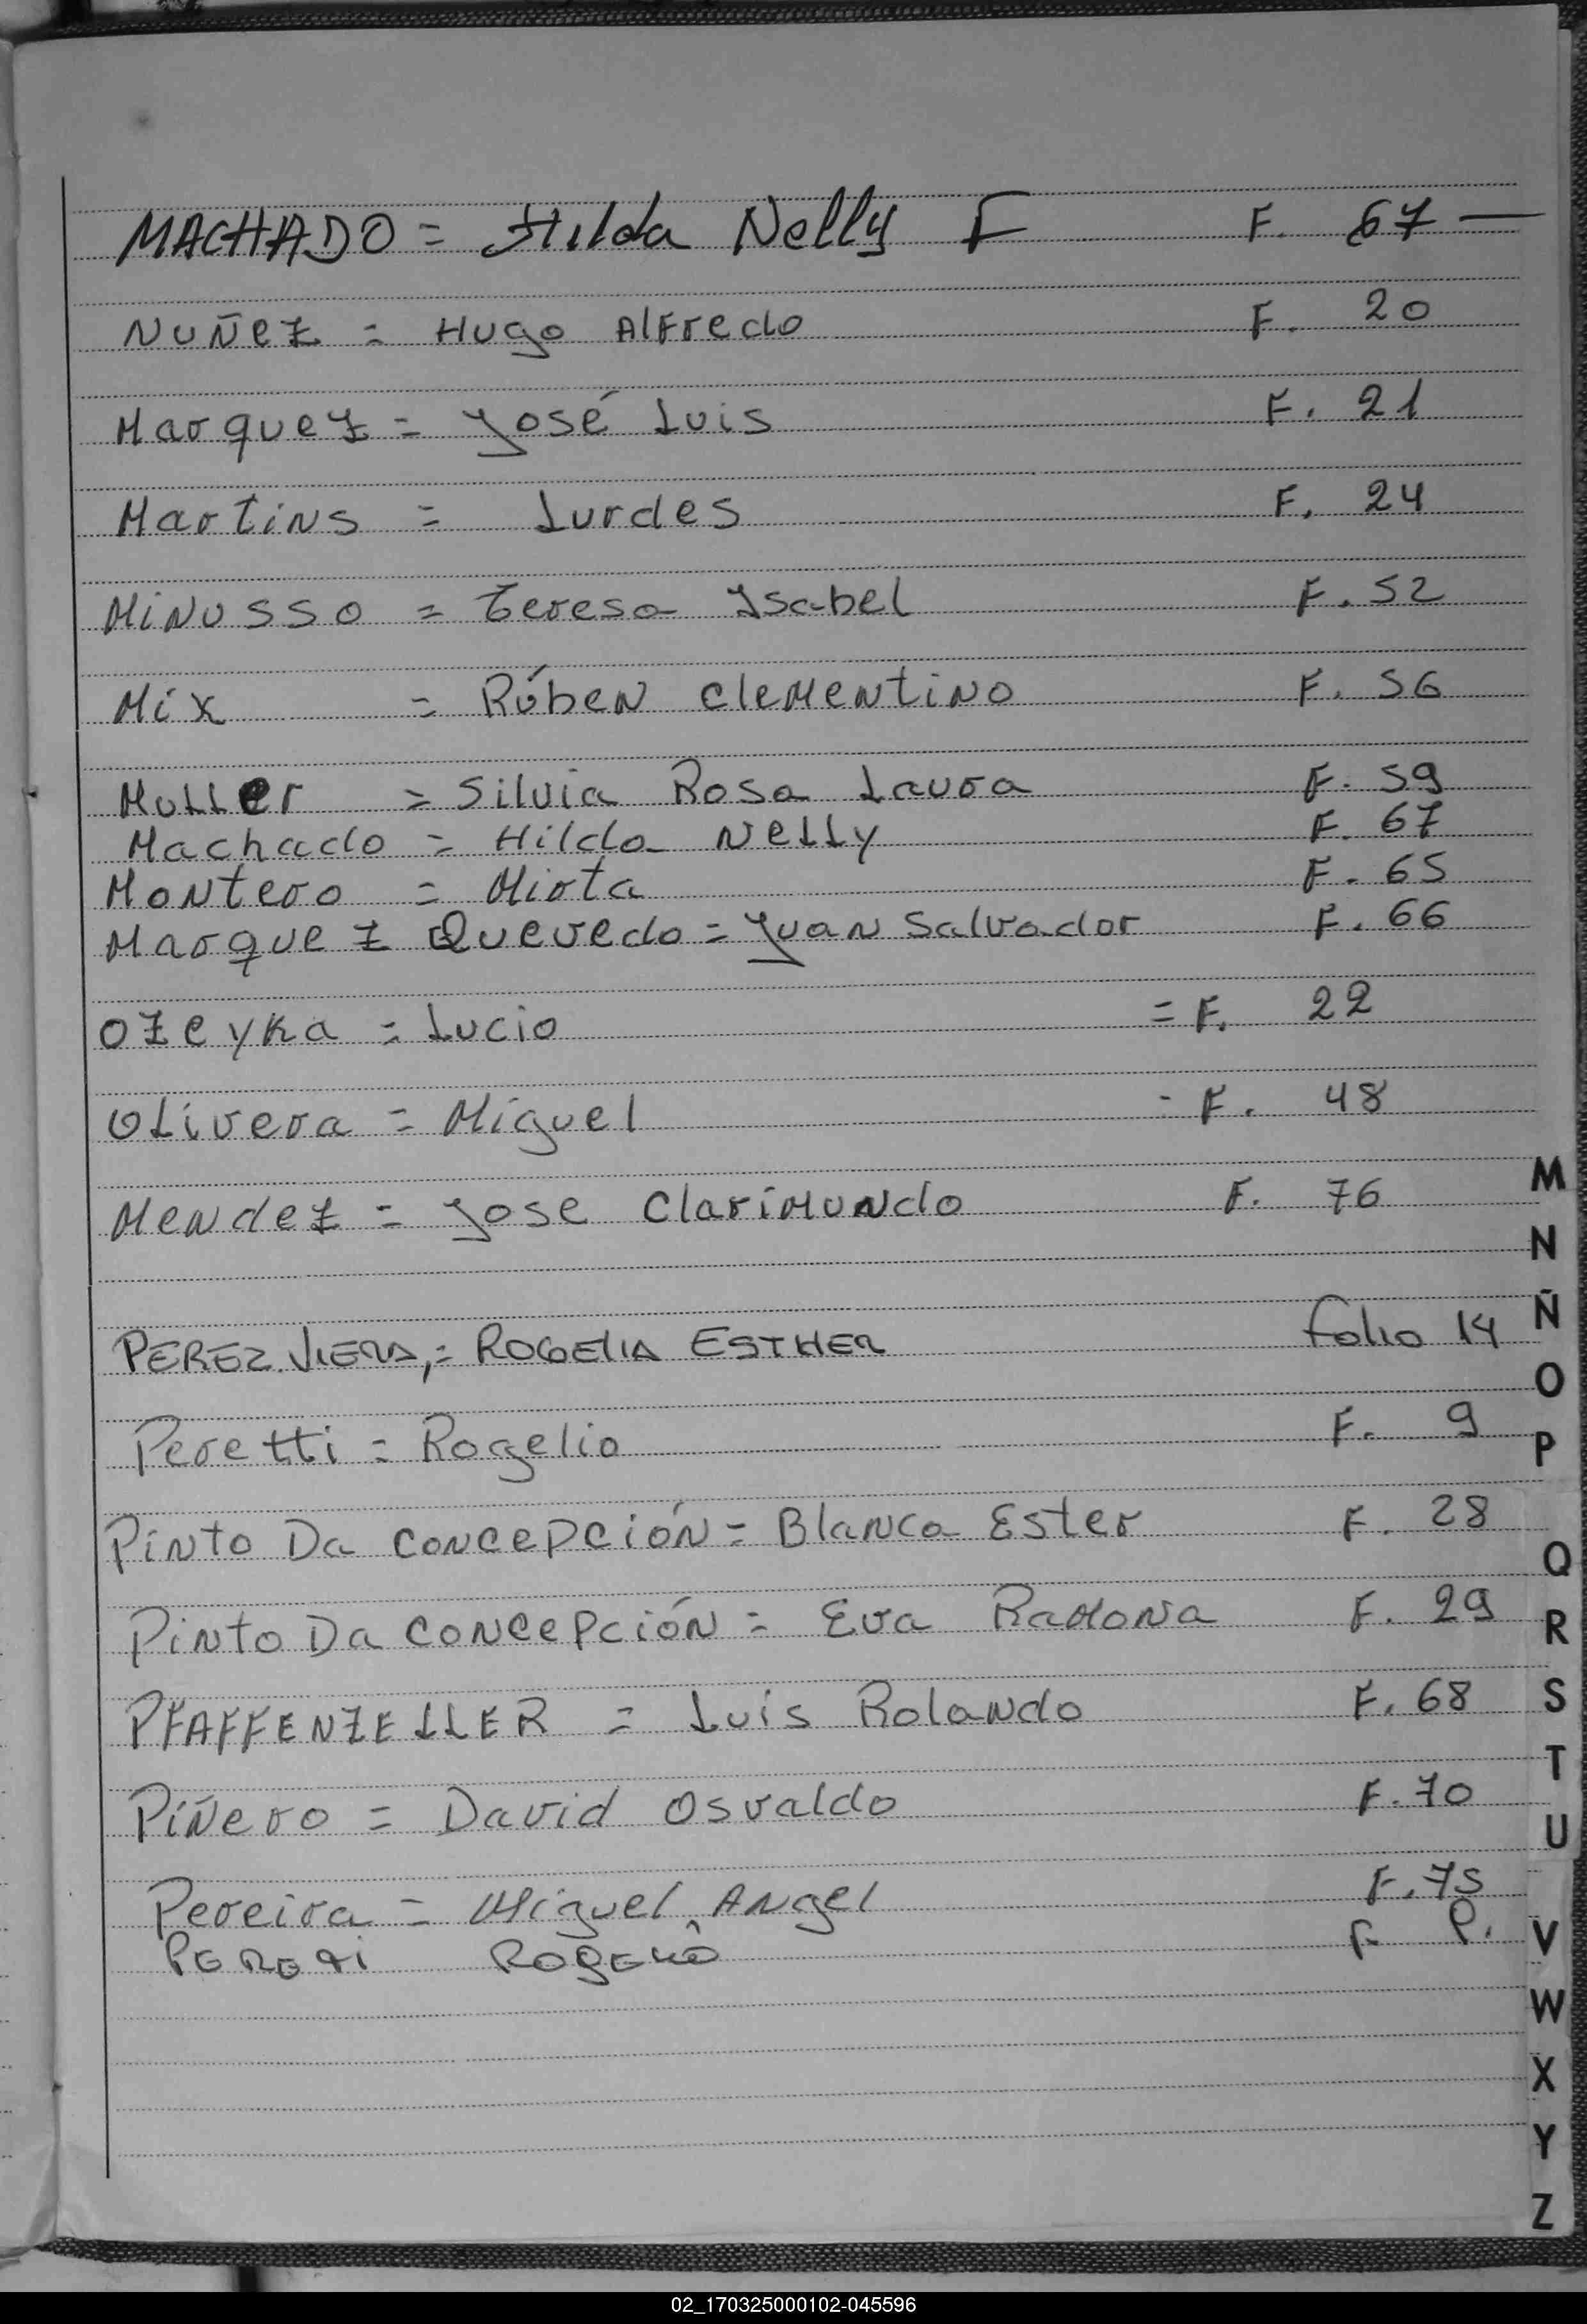 MACHADO = Hilda Nelly F F. 67 —
NUÑez = Hugo AlFredo F. 20
Marquez = José Luis F. 21
Martins = Lurdes F. 24
MiNUSSO = Teresa Isabel F. 52
Mix = Rúben CleMentiNO F. 56
MuLLer = Silvia Rosa Laura F. 59
Machado = Hilda NeLLy F. 67
MONtero = Mirta F. 65
Marquez Quevedo = Juan Salvador F. 66
Ozeyka = Lucio = F. 22
OLivera = Miguel = F. 48
MeNdez = Jose ClariMuNdo F. 76
PEREZ VIERA, = ROGELIA ESTHER folio 14
Peretti = Rogelio F. 9
PiNto Da CONcePcióN = BlaNca Ester F. 28
PiNto Da CONcePcióN = Eva RaMoNa F. 29
PFAFFENZELLER = Luis RolaNdo F. 68
PiÑero = David Osvaldo F. 70
Pereira = Miguel ANgel F. 75
PERETI ROGELIO F. 9.
M
N
Ñ
O
P
Q
R
S
T
U
V
W
X
Y
Z
02_170325000102-045596